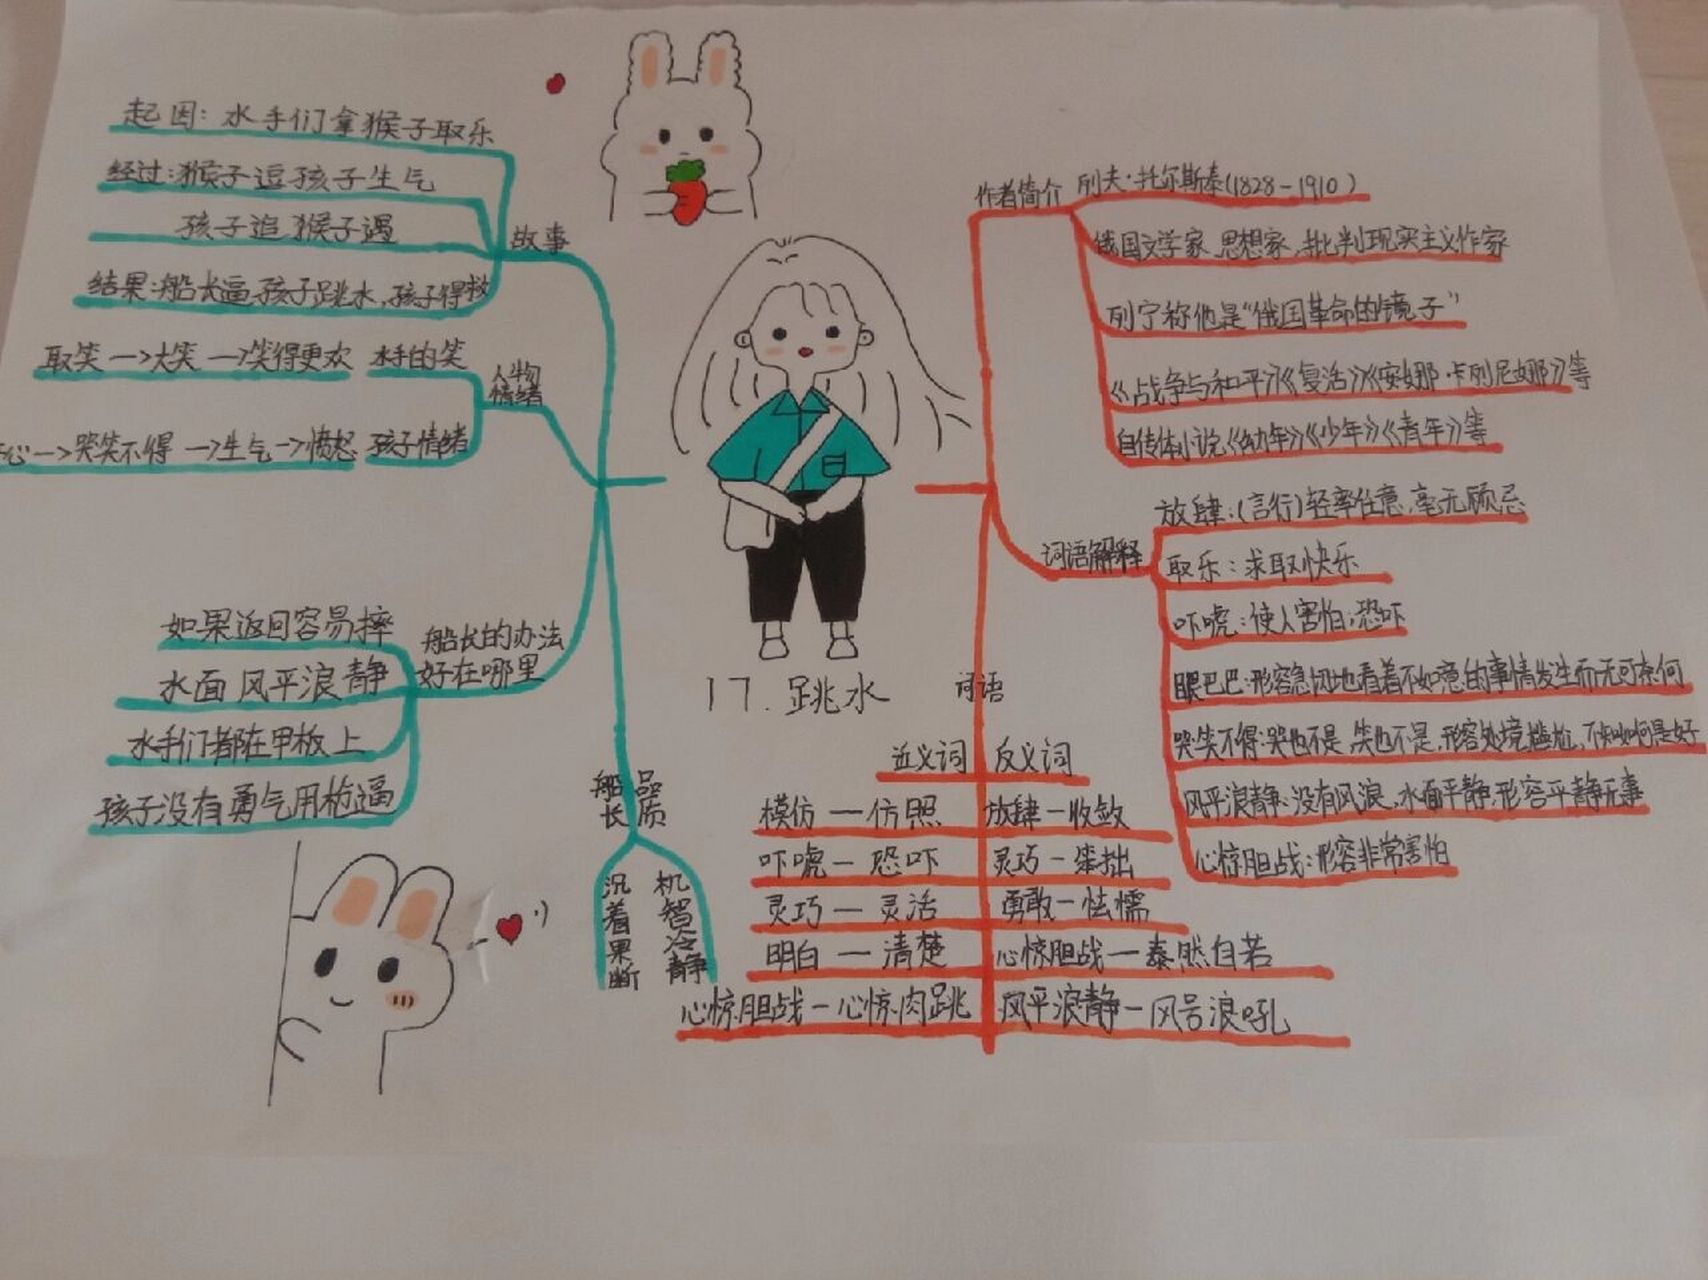 起因：水手们拿猴子取乐
经过：猴子逗孩子生气
孩子追猴子遇
结果：船长逼孩子跳水，孩子得救
故事
取笑—>大笑—>笑得更欢 水手的笑
心—>哭笑不得—>生气—>愤怒 孩子情绪
人物
情绪
如果返回容易摔
水面风平浪静
水手们都在甲板上
孩子没有勇气用枪逼
船长的办法
好在哪里
船长
品质
沉着果断
机智冷静
17.跳水
作者简介 列夫·托尔斯泰(1828-1910)
俄国文学家、思想家、批判现实主义作家
列宁称他是“俄国革命的镜子”
《战争与和平》《复活》《安娜·卡列尼娜》等
自传体小说《幼年》《少年》《青年》等
词语解释
放肆：(言行)轻率任意，毫无顾忌
取乐：求取快乐
吓唬：使人害怕；恐吓
眼巴巴：形容急切地看着不如意的事情发生而无可奈何
哭笑不得：哭也不是，笑也不是，形容处境尴尬，不知如何是好
风平浪静：没有风浪，水面平静，形容平静无事
心惊胆战：形容非常害怕
词语
近义词 反义词
模仿—仿照 放肆—收敛
吓唬—恐吓 灵巧—笨拙
灵巧—灵活 勇敢—怯懦
明白—清楚 心惊胆战—泰然自若
心惊胆战—心惊肉跳 风平浪静—风号浪吼